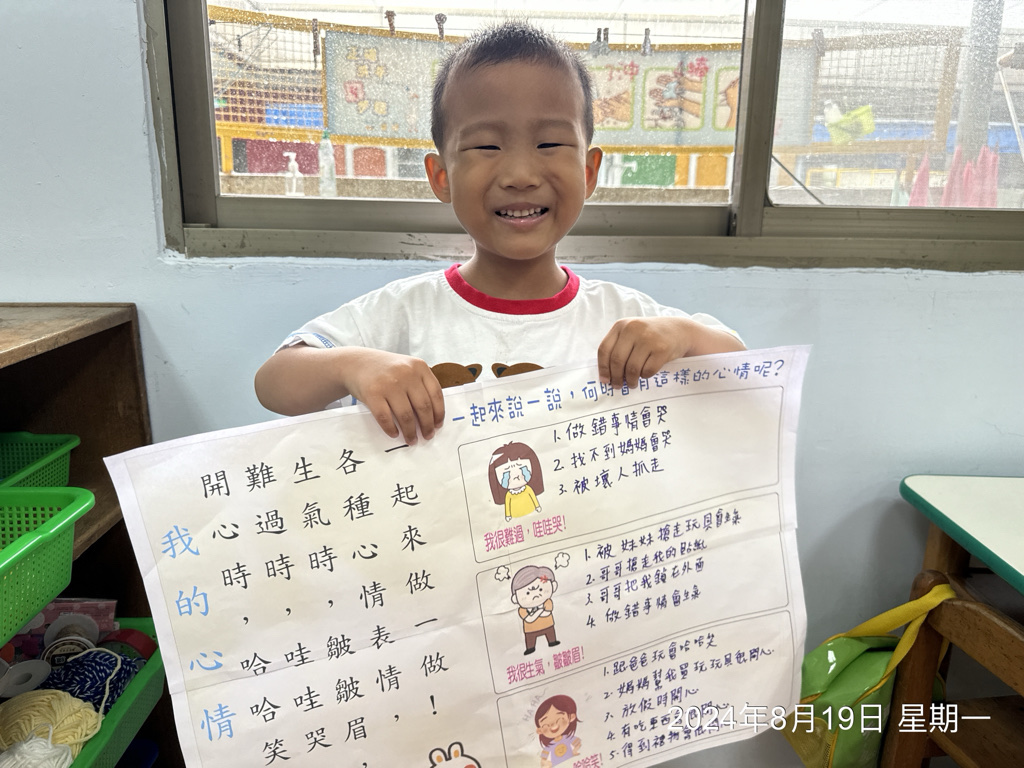 我的心情
一起來做一做！
各種心情表情，
生氣時，皺皺眉，
難過時，哇哇哭
開心時，哈哈笑
一起來說一說，何時會有這樣的心情呢？
1.做錯事情會哭
2.找不到媽媽會哭
3.被壞人抓走
我很難過，哇哇哭！
1.被妹妹搶走玩具會生氣
2.哥哥搶走我的貼紙
3.哥哥把我鎖在外面
4.做錯事情會生氣
我很生氣，皺皺眉！
1.跟爸爸玩會哈哈笑
2.媽媽幫我買玩玩具很開心
3.放假時開心
4.有吃東西
5.得到禮物
哈哈笑！
2024年8月19日 星期一